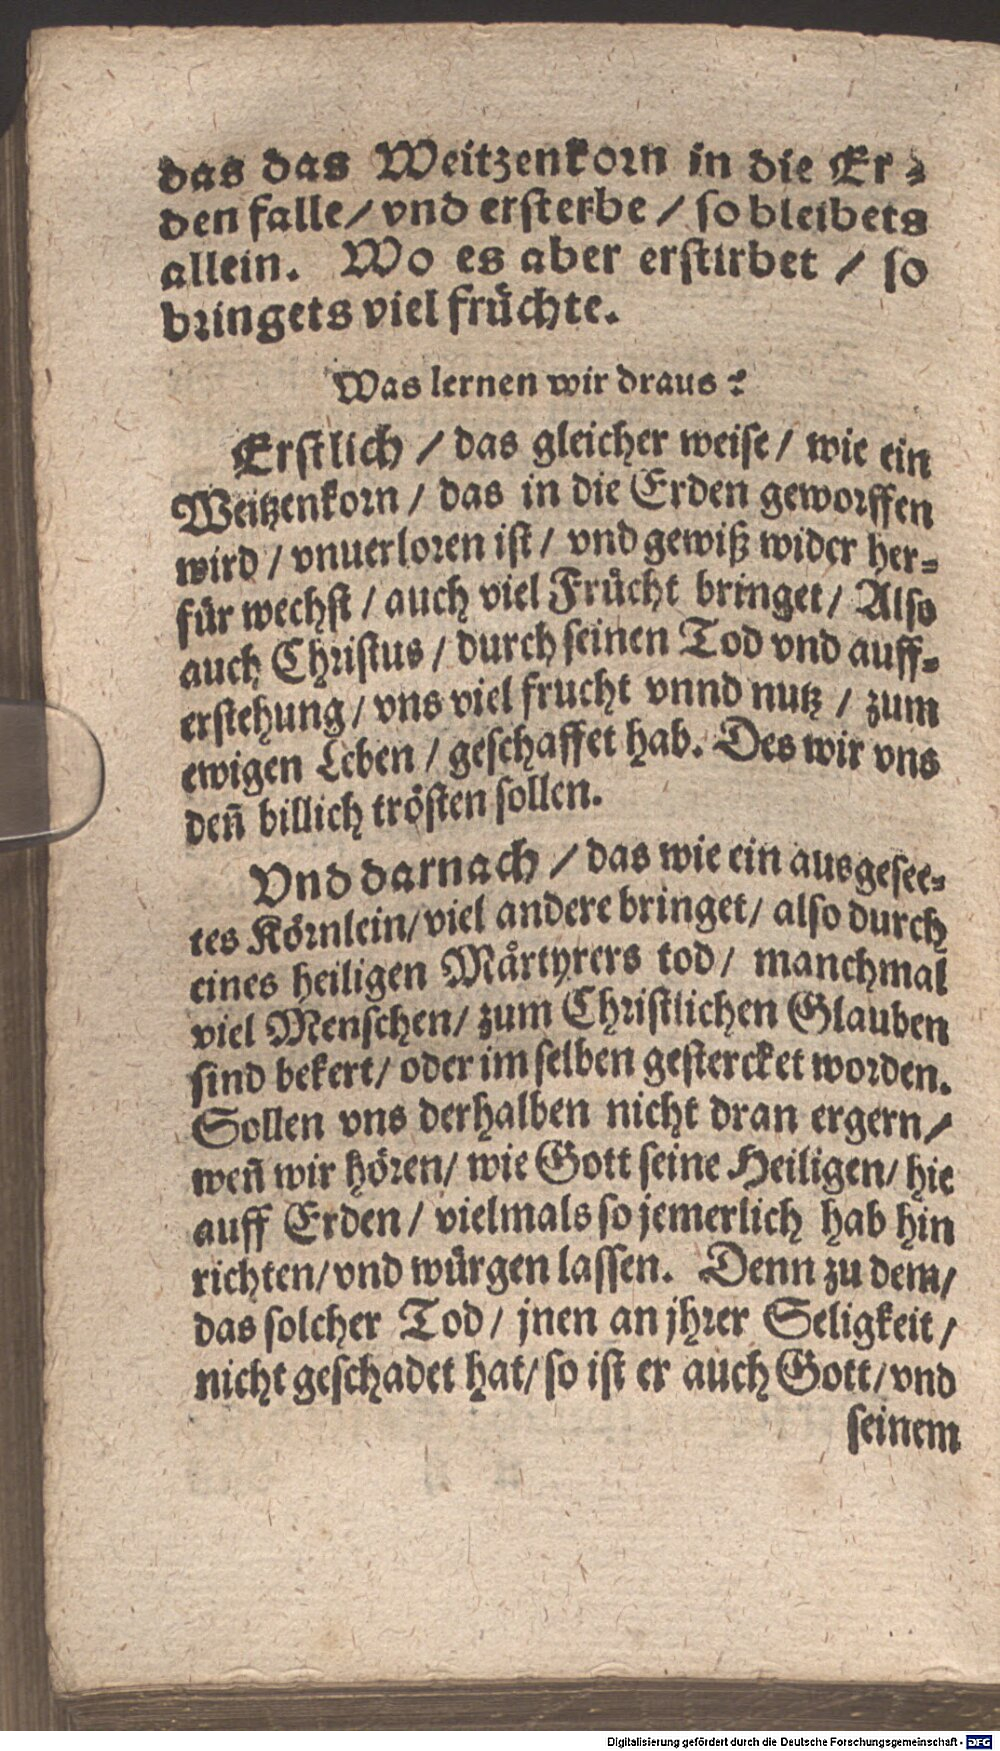 das das Weitzenkorn in die Er-
den falle/ vnd ersterbe / so bleibets
allein. Wo es aber erstirbet / so
bringets viel früchte.
Was lernen wir draus?
Erstlich / das gleicher weise/ wie ein
Weitzenkorn / das in die Erden geworffen
wird / vnuerloren ist / vnd gewiß wider her-
für wechst / auch viel Frücht bringet/ Also
auch Christus / durch seinen Tod vnd auff-
erstehung/ vns viel frucht vnnd nutz / zum
ewigen Leben / geschaffet hab. Des wir vns
deñ billich trösten sollen.
Vnd darnach / das wie ein ausgesee-
tes Körnlein/ viel andere bringet/ also durch
eines heiligen Mårtyrers tod/ manchmal
viel Menschen/ zum Christlichen Glauben
sind bekert/ oder im selben gestercket worden.
Sollen vns derhalben nicht dran ergern/
weñ wir hören/ wie Gott seine Heiligen/ hie
auff Erden / vielmals so jemerlich hab hin
richten/ vnd würgen lassen. Denn zu dem/
das solcher Tod / jnen an jhrer Seligkeit /
nicht geschadet hat/ so ist er auch Gott/ vnd
seinem
Digitalisierung gefördert durch die Deutsche Forschungsgemeinschaft - DFG